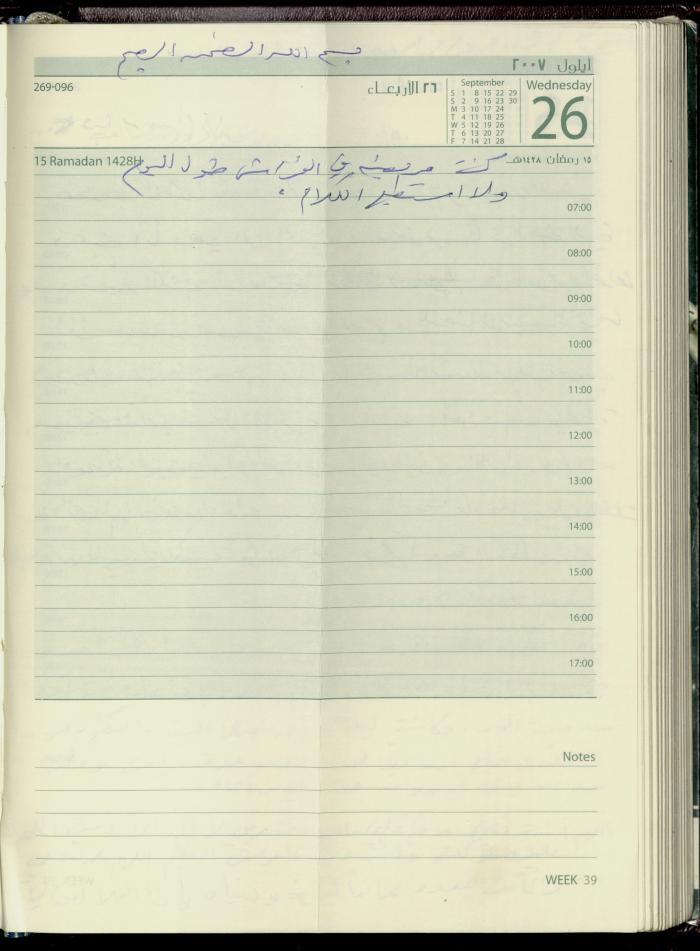 بسم الله الرحمن الرحيم
ايلول ٢٠٠٧
269-096
٢٦ الأربعـاء
September
S 1 8 15 22 29
S 2 9 16 23 30
M 3 10 17 24
T 4 11 18 25
W 5 12 19 26
T 6 13 20 27
F 7 14 21 28
Wednesday
26
15 Ramadan 1428H
١٥ رمضان ١٤٢٨هـ
كنت مريضة في الفراش طول اليوم
ولا استطيع الكلام .
07:00
08:00
09:00
10:00
11:00
12:00
13:00
14:00
15:00
16:00
17:00
Notes
WEEK 39